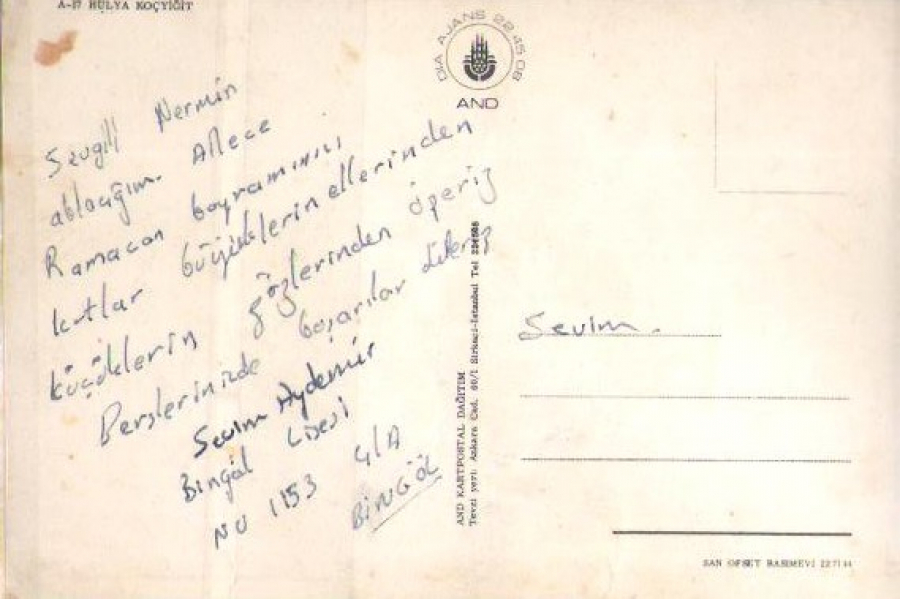 A-17 HÜLYA KOÇYİĞİT
DİA AJANS 22 45 08
AND
Sevgili Nermin
ablacığım. Ailece
Ramazan bayramınızı
kutlar büyüklerin ellerinden
küçüklerin gözlerinden öperiz
Derslerinizde başarılar dileriz
Sevim Aydemir
Bingöl Lisesi
NU 1153 4/A
BİNGÖL
Sevim.
AND KARTPOSTAL DAĞITIM
Tevzi yeri: Ankara Cad. 60/1 Sirkeci-İstanbul Tel
SAN OFSET BASIMEVİ 22 71 44